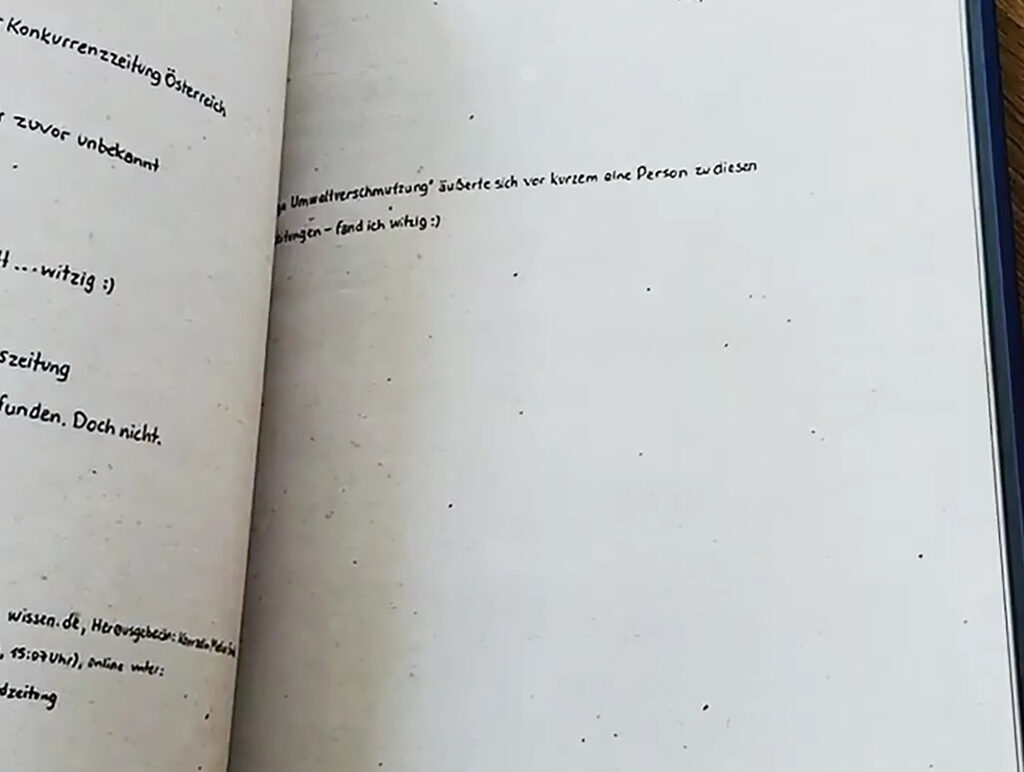 Konkurrenzzeitung Österreich
zuvor unbekannt
...witzig :)
szeitung
funden. Doch nicht.
wissen.de, Herausgeberin:
, 15:07 Uhr), online unter:
dzeitung
Umweltverschmutzung" äußerte sich vor kurzem eine Person zu diesen
– fand ich witzig :)